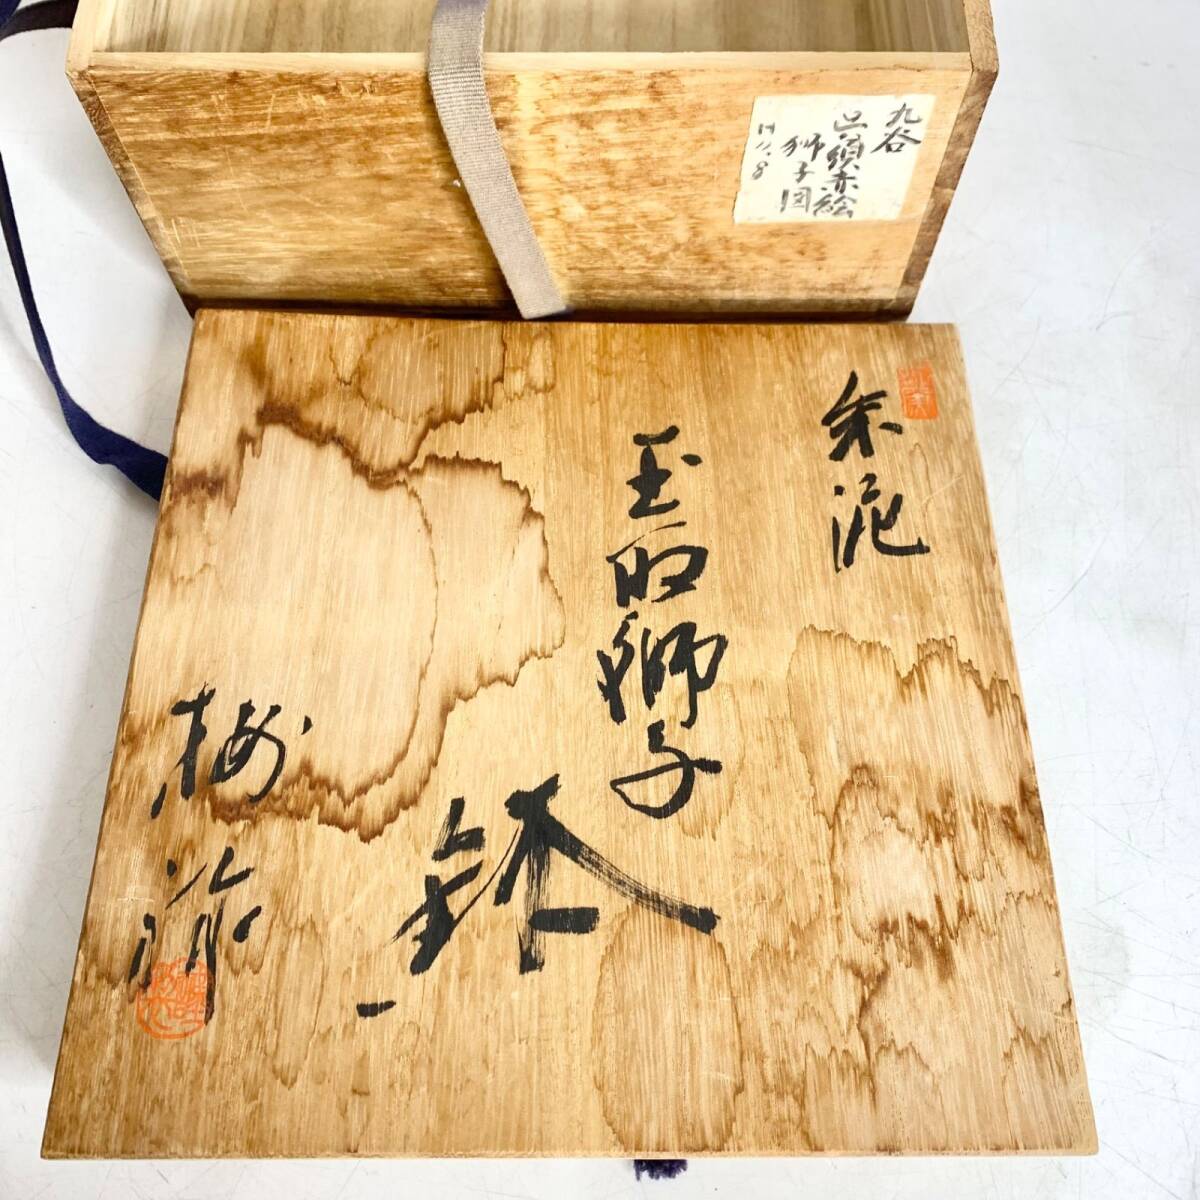 九谷
呉須赤絵
獅子図
H11.8
朱泥
玉取獅子
鉢